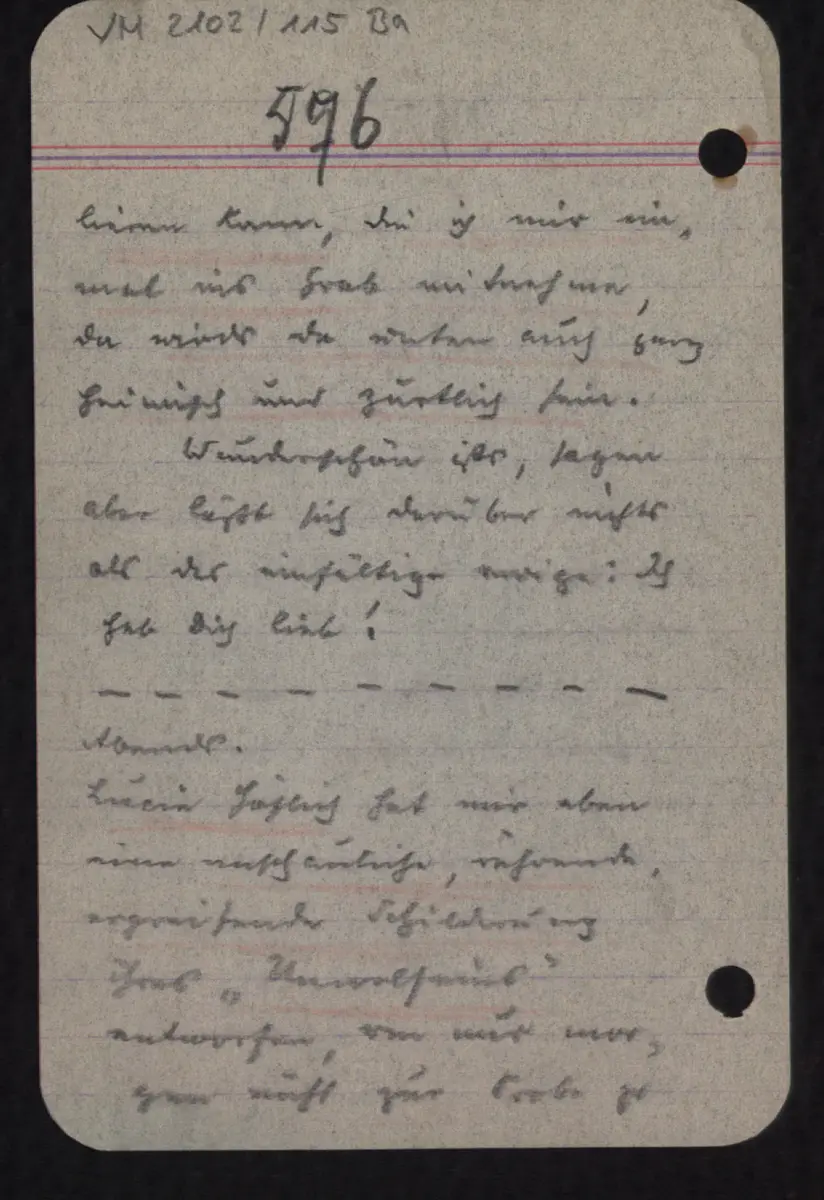 VM 2102 / 115 Ba
596
lieren kann, die ich mir ein-
mal ins Grab mitnehme,
da wirds da unten auch ganz
heimisch und zärtlich sein.
Wunderschön ists, sagen
aber läßt sich darüber nichts
als das einfältige ewige: Ich
hab Dich lieb!
— — — — — — — — —
Abends.
Lucie Höflich hat mir eben
eine anschauliche, rührende,
ergreifende Schilderung
ihres „Unwolseins"
entworfen, um nur mor-
gen nicht zur Probe zu